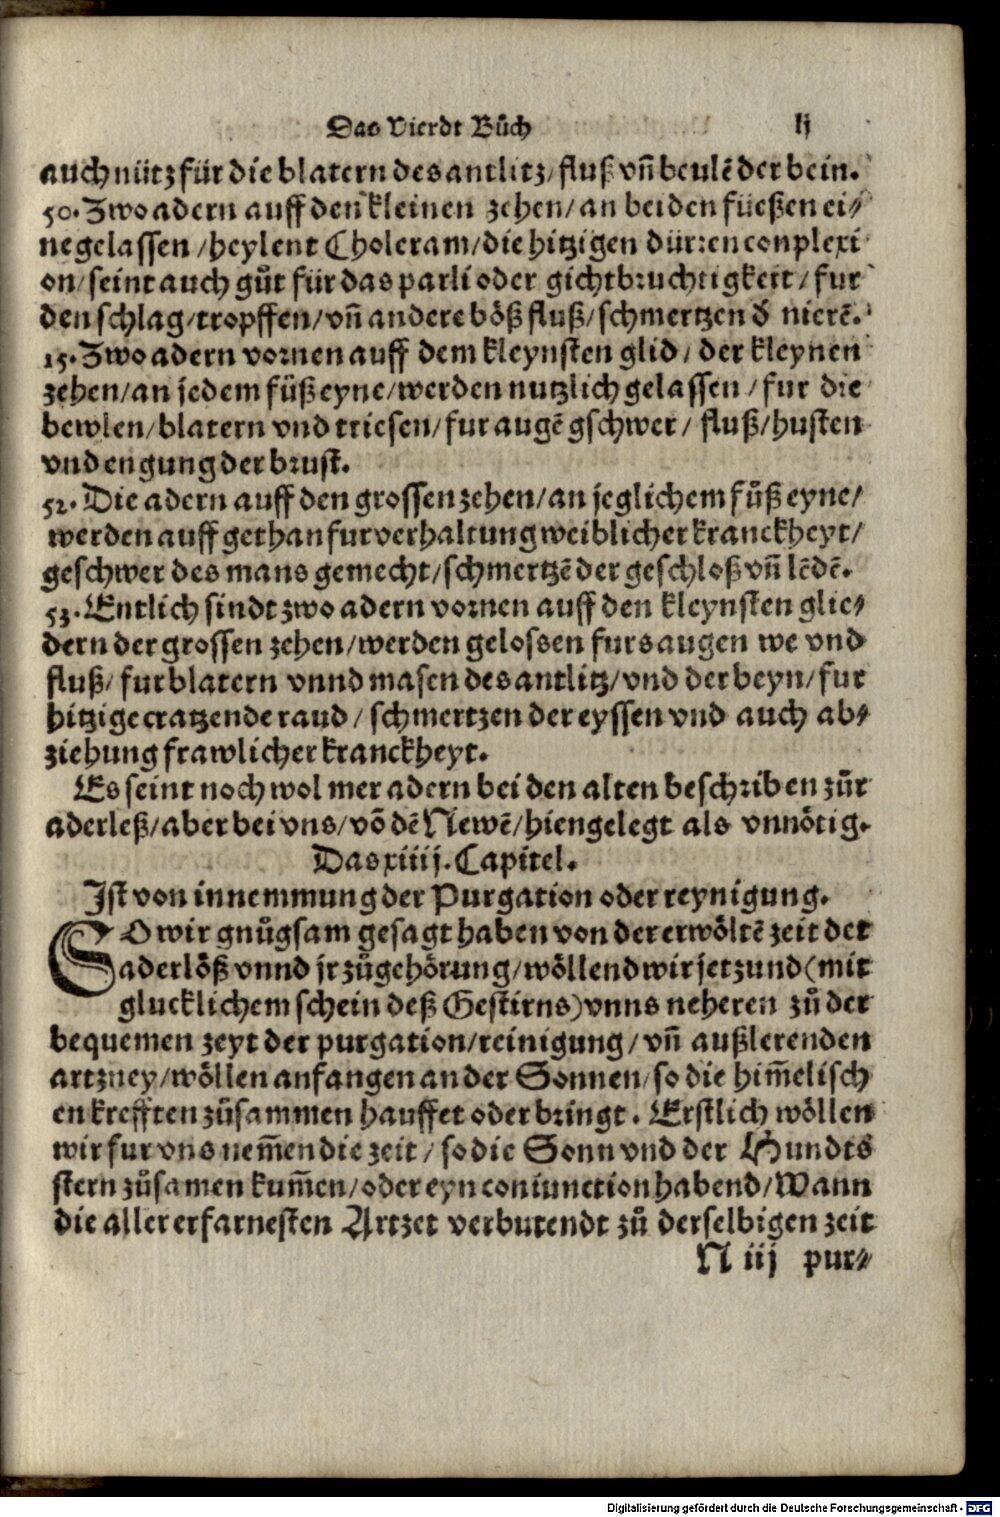 Das Vierdt Bůch lj
auch nütz für die blatern des antlitz/ fluß vñ beulẽ der bein.
50. Zwo adern auff den kleinen zehen/ an beiden füeßen ei⸗
ne gelassen /heylent Choleram/die hitzigen dürren conplexi
on/ seint auch gůt für das parli oder gichtbruchtigkeit/ fur
den schlag/tropffen/vñ andere böß fluß/schmertzen d̕ nierẽ.
15. Zwo adern vornen auff dem kleynsten glid/ der kleynen
zehen/an jedem fůß eyne/werden nutzlich gelassen /fur die
bewlen/blatern vnd triesen/fur augẽ gschwer/ fluß/husten
vnd engung der brust.
52. Die adern auff den grossen zehen/an jeglichem fůß eyne/
werden auff gethan fur verhaltung weiblicher kranckheyt/
geschwer des mans gemecht/schmertzẽ der geschloß vñ lẽdẽ.
53. Entlich sindt zwo adern vornen auff den kleynsten glie⸗
dern der grossen zehen/werden gelossen furs augen we vnd
fluß/ fur blatern vnnd masen des antlitz/vnd der beyn/fur
hitzige cratzende raud/ schmertzen der eyssen vnd auch ab⸗
ziehung frawlicher kranckheyt.
Es seint noch wol mer adern bei den alten beschriben zůr
aderleß/aber bei vns/võ dẽ Newẽ/hien gelegt als vnnötig.
Das xiiij. Capitel.
Ist von innemmung der Purgation oder reynigung.
SO wir gnůgsam gesagt haben von der erwöltẽ zeit der
aderlöß vnnd jr zůgehörung/wöllend wir jetzund(mit
glucklichem schein deß Gestirns)vnns neheren zů der
bequemen zeyt der purgation/reinigung/ vñ außlerenden
artzney/wöllen anfangen an der Sonnen/so die him̃elisch
en krefften zůsammen hauffet oder bringt. Erstlich wöllen
wir fur vns nem̃en die zeit/ so die Sonn vnd der Hundts
stern zůsamen kum̃en/oder eyn coniunction habend/Wann
die aller erfarnesten Artzet verbutendt zů derselbigen zeit
N iij pur⸗
Digitalisierung gefördert durch die Deutsche Forschungsgemeinschaft - DFG